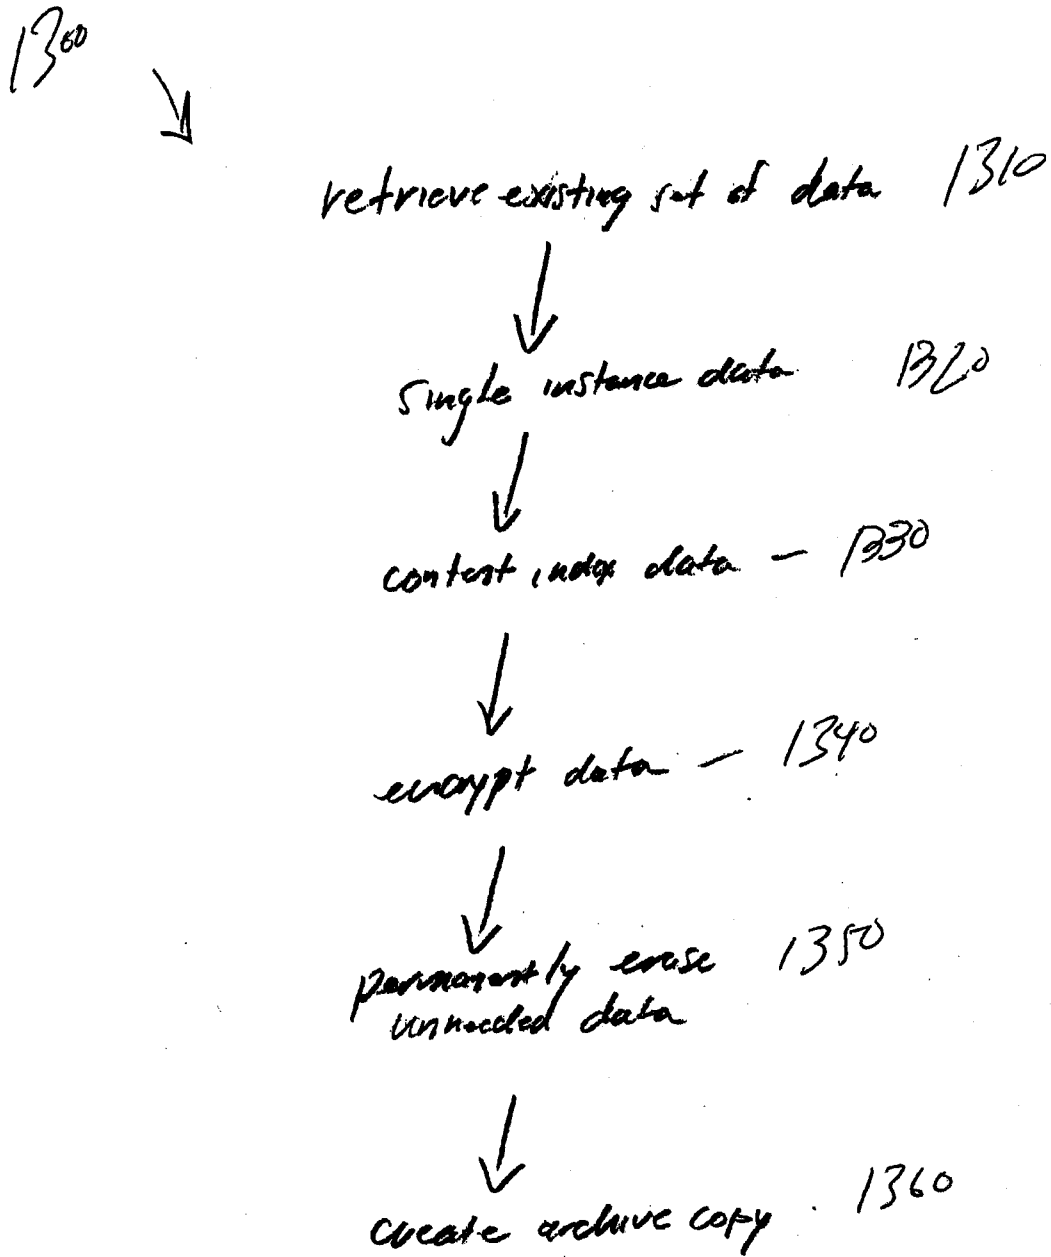 1300
retrieve existing set of data 1310
single instance data 1320
content index data - 1330
encrypt data - 1340
permanently erase 1350
unneeded data
create archive copy 1360